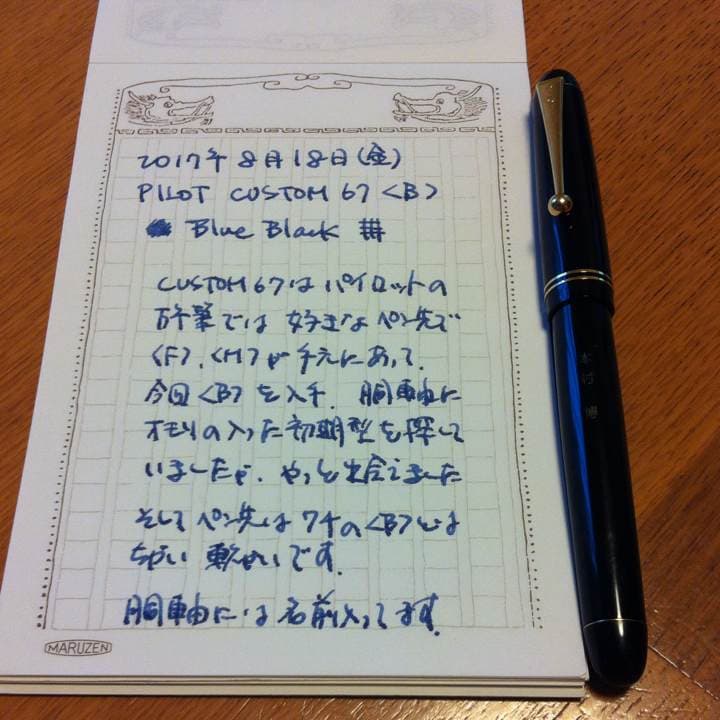 2017年8月18日(金)
PILOT CUSTOM 67 <B>
Blue Black
CUSTOM67はパイロットの
万年筆では好きなペン先で
<F>、<M>が手元にあって、
今回<B>を入手、胴軸に
オモリの入った初期型を探して
いましたが、やっと出会えました
そしてペン先は74の<B>とは
ちがい軟かいです。
胴軸には名前入ってます。
MARUZEN